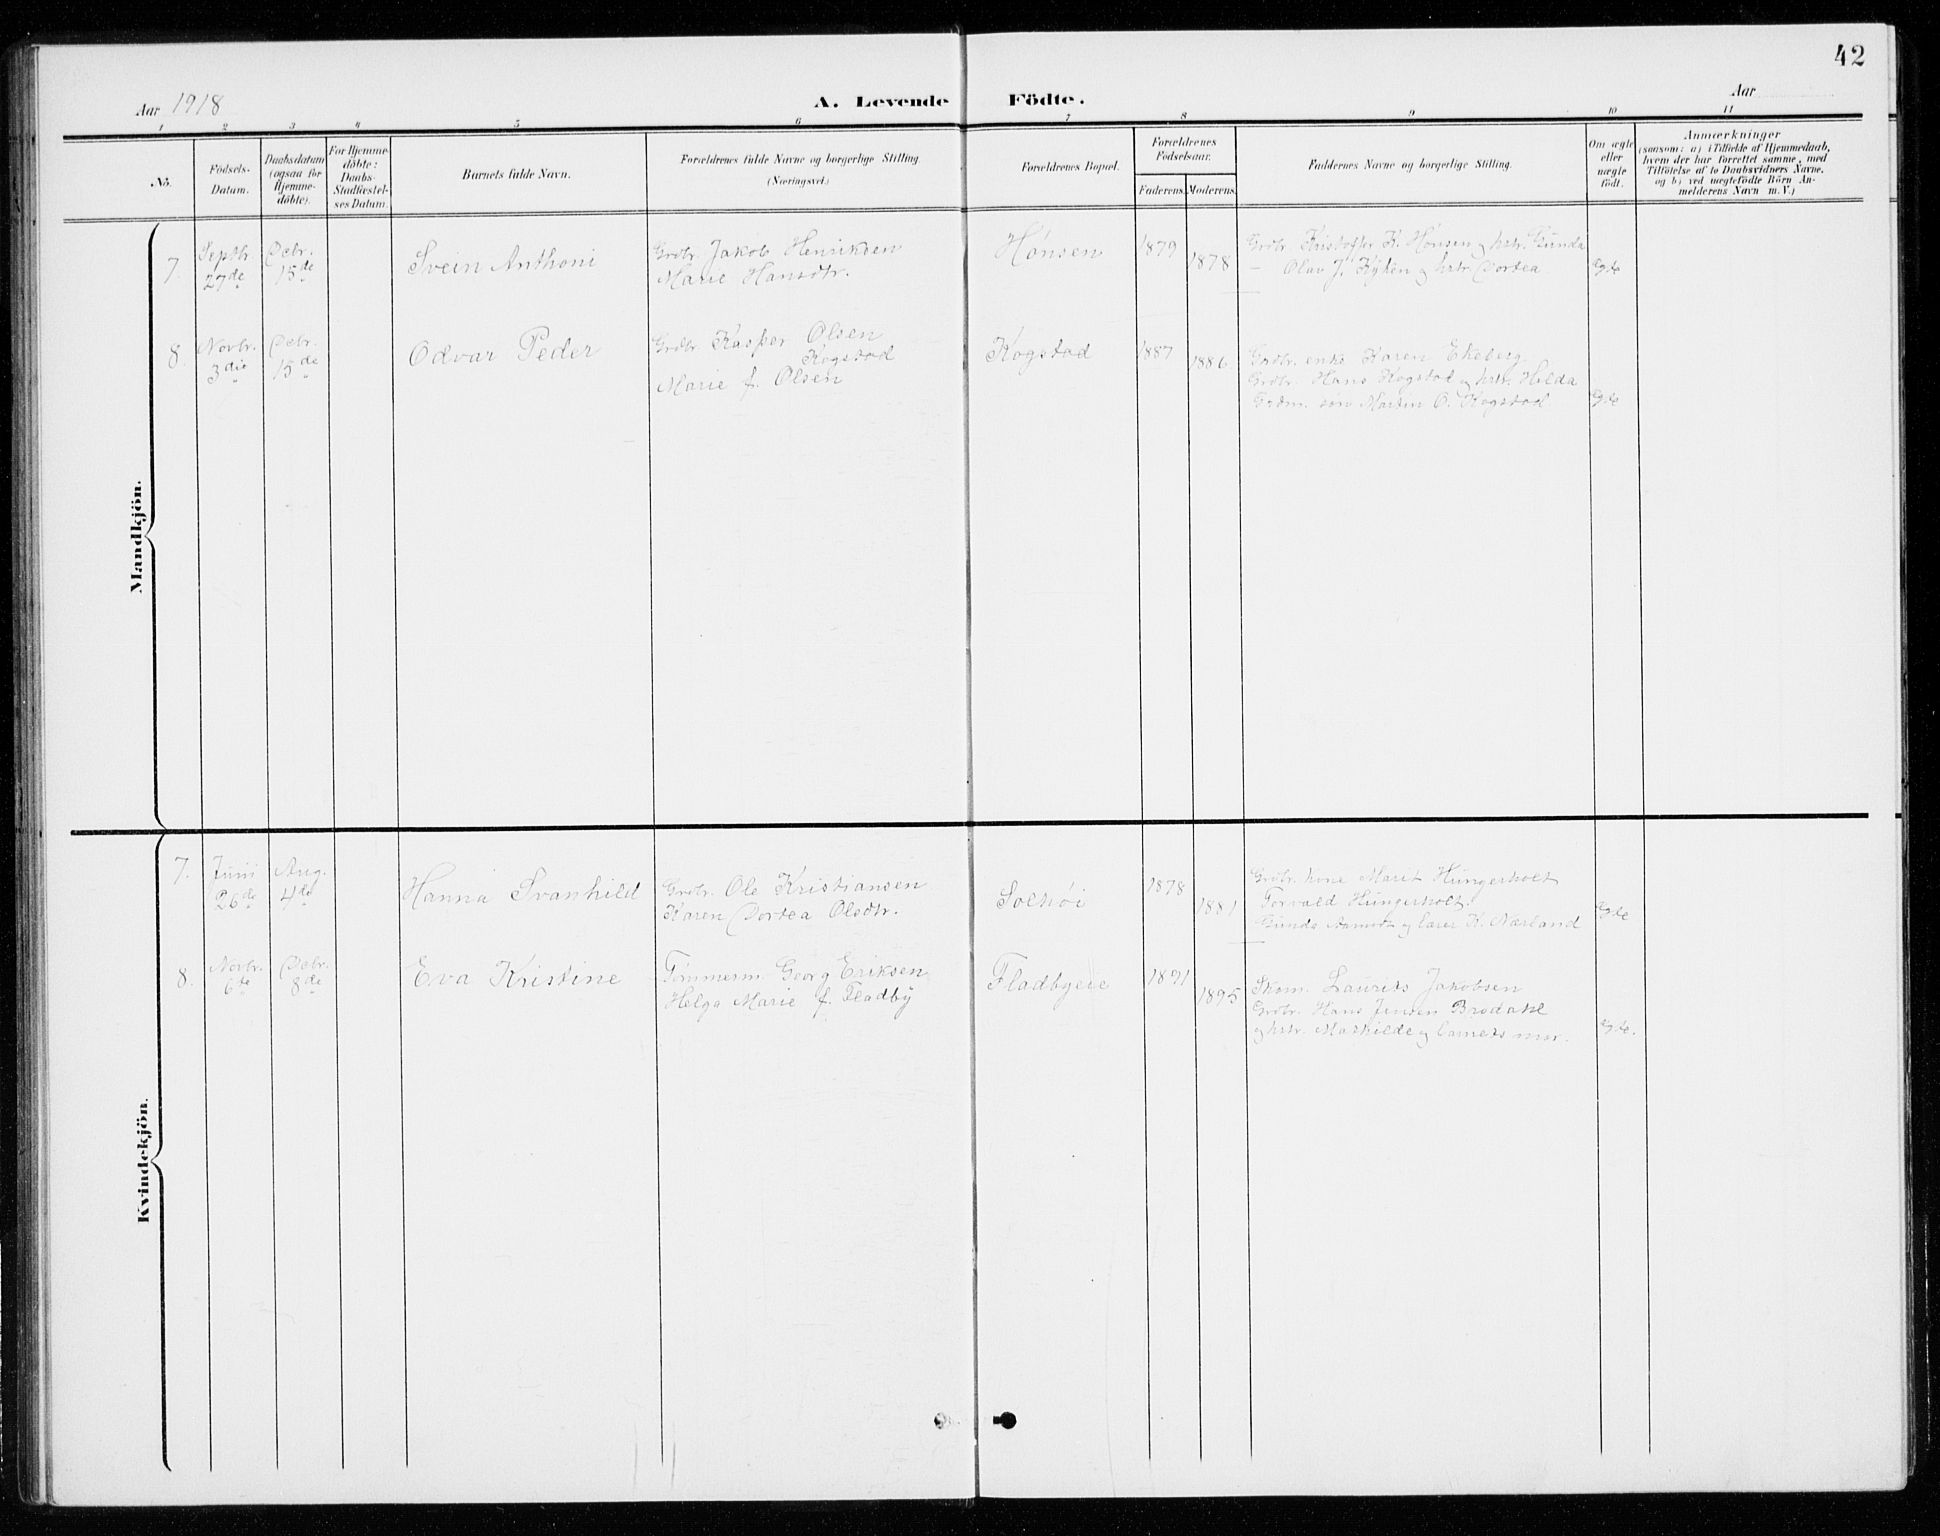 42
Aar 1918
A. Levende Födte.
Aar
1 2 3 4 5 6 7 8 9 10 11
No.
Födsels-
Datum.
Daabsdatum
(ogsaa for
Hjemme-
döbte).
For Hjemme-
döbte:
Daabs-
Stadfæstel-
ses Datum.
Barnets fulde Navn.
Forældrenes fulde Navne og borgerlige Stilling.
(Næringsvei.)
Forældrenes Bopæl.
Forældrenes
Födselsaar.
Faderens. Moderens.
Faddernes Navne og borgerlige Stilling.
Om ægte
eller
uægte
födt.
Anmærkninger
(saasom: a) i Tilfælde af Hjemmedaab,
hvem der har forrettet samme, med
Tilföielse af to Daabsvidners Navne,
og b) ved uægtefödte Börn An-
melderens Navn m. V.)
Mandkjön.
7.
Septbr.
27de
Debr.
15de
Svein Anthoni
Grdbr. Jakob Henriksen
Marie Hansdtr.
Hónsen
1879
1878
Grdbr. Kristoffer K. Hónsen og hstr. Gunda
— Olav J. Kyken og hstr. Dortea
Egte
8.
Novbr.
3die
Debr.
15de
Odvar Peder
Grdbr. Kasper Olsen
Kogstad
Marie f. Olsen
Kogstad
1887
1886.
Grdbr. enke Karen Ekeberg
Grdbr. Hans Kogstad og hstr. Hilda
Grdm. søn Martin O. Kogstad.
Egte
Kvindekjön.
7.
Juni
26de
Aug.
4de
Hanna Svanhild
Grdbr. Ole Kristiansen
Karen Dortea Olsdtr.
Solhói
1878
1881
Grdbr. kone Marit Hungerholt
Torvald Hungerholt.
Gunda Aamot og lærer K. Nærland
Egte
8.
Novbr.
6te
Debr.
8de
Eva Kristine
Tómmerm. Georg Eriksen
Helga Marie f. Fladby
Fladbyeie
1891
1895
Skom. Laurits Jakobsen
Grdbr. Hans Jensen Brodahl
og hstr. Mathilde og barnets mor.
Egte.